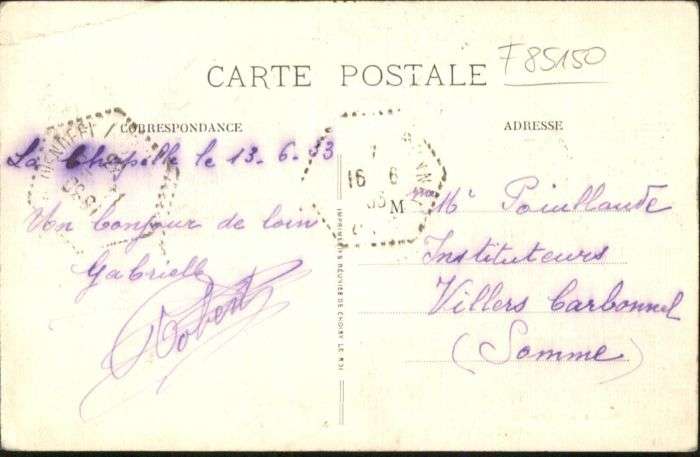 F85150
CARTE POSTALE
CORRESPONDANCE
ADRESSE
La Chapelle le 13.6.33
Un bonjour de loin
Gabrielle
Robert
IMPRIMERIES RÉUNIES DE CHOISY LE ROI
16 6
33
M
Mr Mme
Instituteurs
Villers Carbonnel
(Somme)